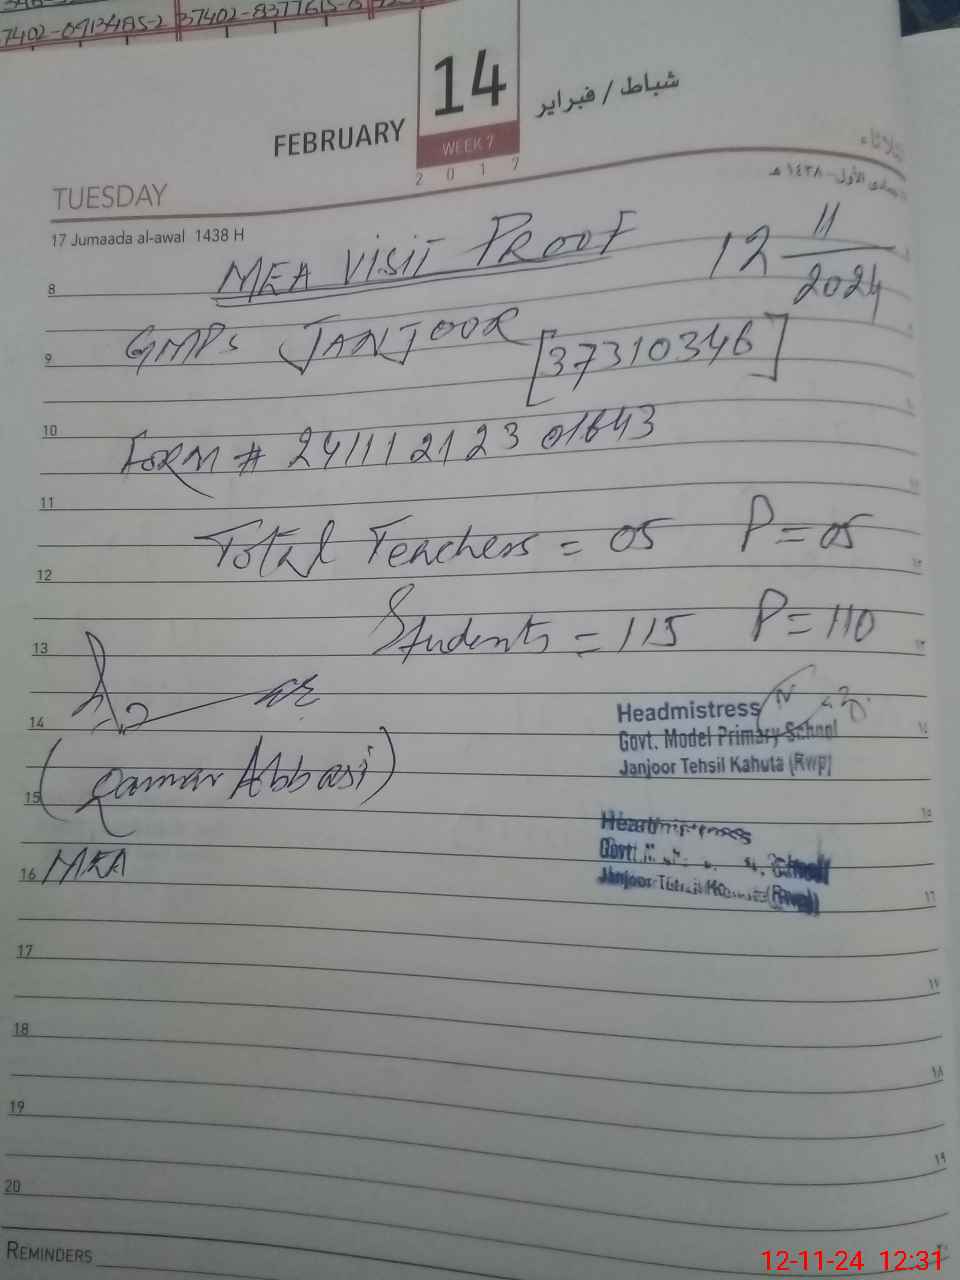 7402-0913485-2 37402-8377615-8
FEBRUARY 14 شباط / فبراير
WEEK 7
2 0 1 7
TUESDAY
17 Jumaada al-awal 1438 H
MEA VISIT PROOF 12 11/2024
8
GMPS JANJOOR [37310346]
9
10
FORM # 2411121230 1643
11
Total Teachers = 05 P = 05
12
Students = 115 P = 110
13
14
Headmistress
Govt. Model Primary School
Janjoor Tehsil Kahuta (Rwp)
(Qamar Abbasi)
15
Headmistress
Govt. School
Janjoor (Rwp)
16 MEA
17
18
19
20
REMINDERS
12-11-24 12:31